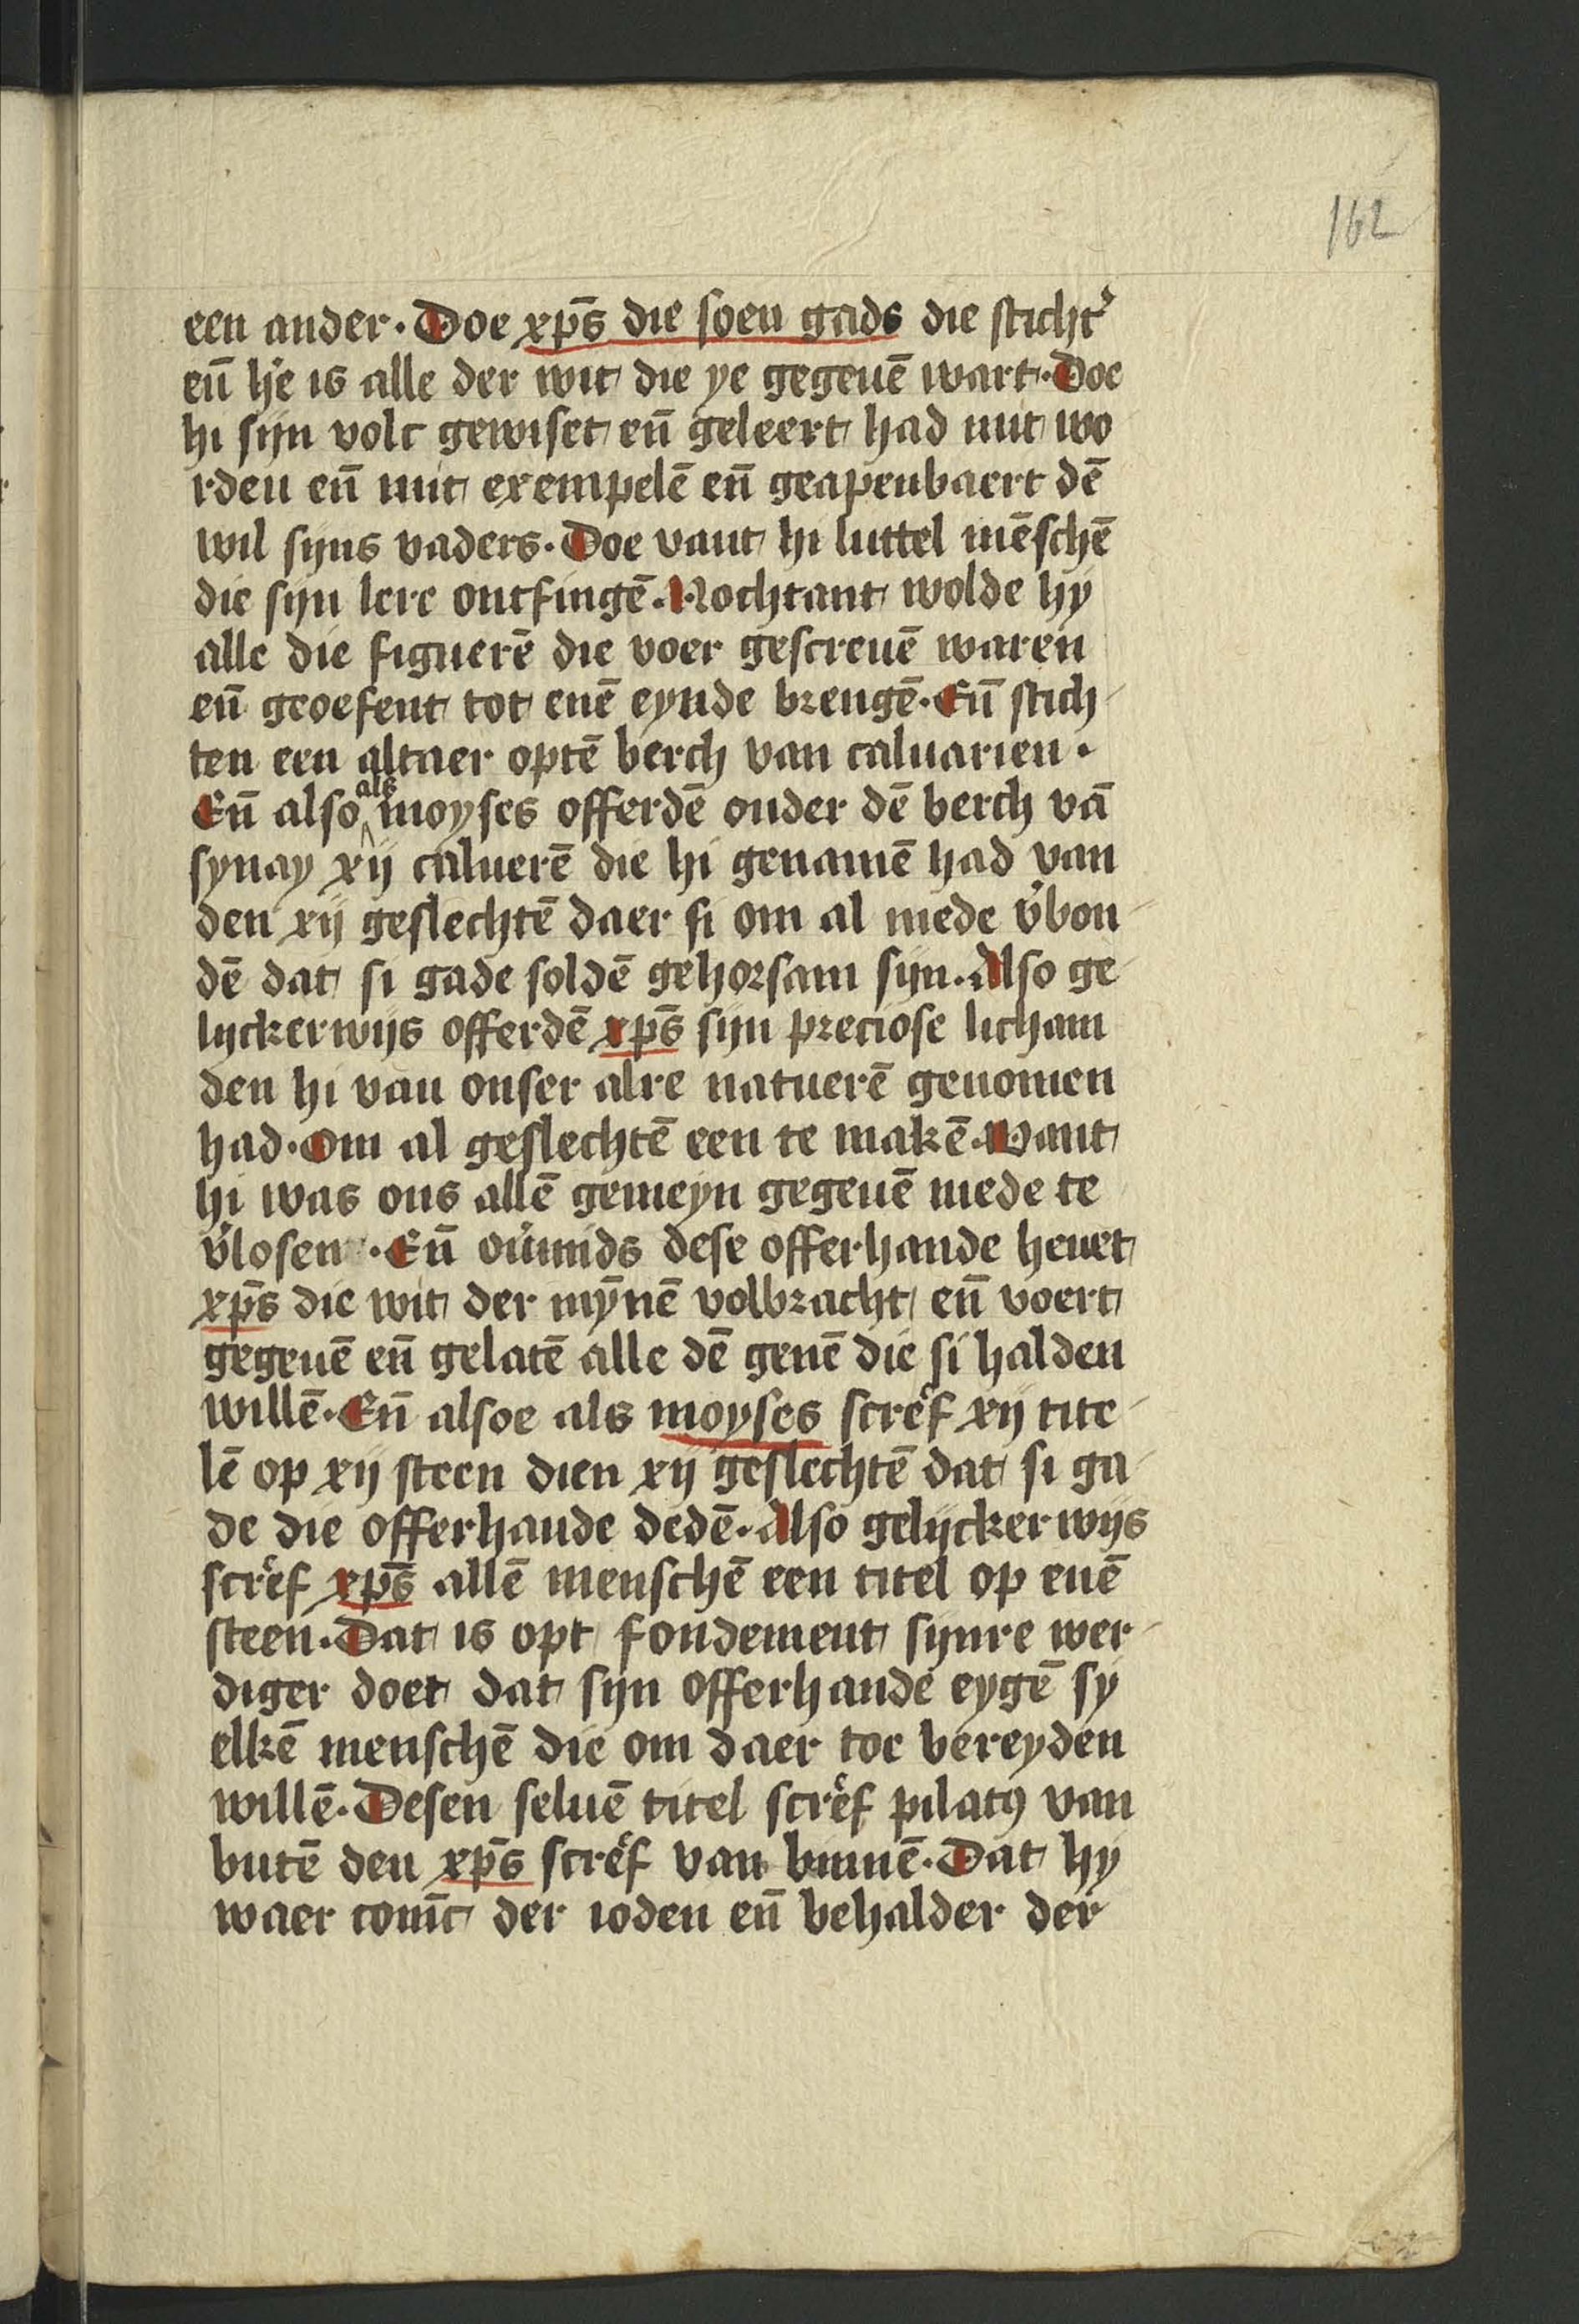 162
een ander. Doe xp̄s die soen gads die sticht'
en̄ h'e is alle der wit die ye gegeuē wart. Doe
hi sijn volc gewiset en̄ geleert had mit wo
rden en̄ mit exempelē en̄ geapenbaert dē
wil sijns vaders. Doe vant hi luttel mēschē
die sijn lere ontfingē. Nochtant wolde hy
alle die figuerē die voer gescreuē waren
en̄ geoefent tot enē eynde brengē. En̄ stich
ten een altaer optē berch van caluarien.
En̄ also als moyses offerdē onder dē berch vā
synay xij caluerē die hi genamē had van
den xij geslechtē daer si om al mede v'bon
dē dat si gade soldē gehorsam sijn. Also ge
lijckerwijs offerdē xp̄s sijn preciose licham
den hi van onser alre natuerē genomen
had. Om al geslechtē een te makē. Want
hi was ons allē gemeyn gegeuē mede te
v'losen. En̄ ou'mids dese offerhande heuet
xp̄s die wit der mȳnē volbracht en̄ voert
gegeuē en̄ gelatē alle dē genē die si halden
willē. En̄ alsoe als moyses scref xij tite
lē op xij steen dien xij geslechtē dat si ga
de die offerhande dedē. Also gelijckerwijs
scref xp̄s allē menschē een titel op enē
steen. Dat is opt fondement sijnre wer
diger doet dat sijn offerhande eygē sy
elkē menschē die om daer toe bereyden
willē. Desen seluē titel scref pilatꝯ van
butē den xp̄s scref van binnē. Dat hy
waer coninc der ioden en̄ behalder der